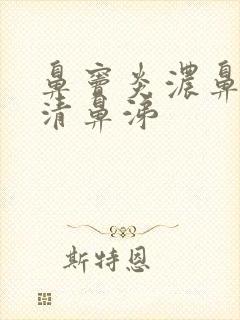 鼻窦炎浓鼻
清鼻涕
斯特恩